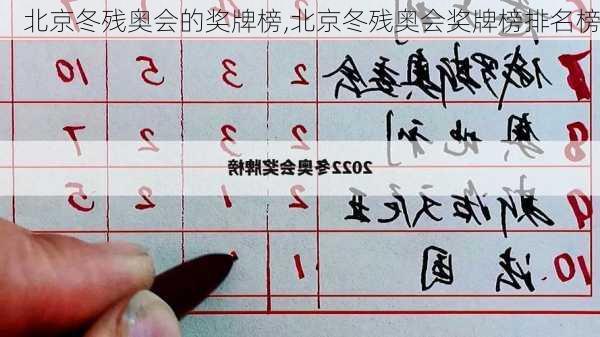 北京冬残奥会的奖牌榜,北京冬残奥会奖牌榜排名榜
7 俄罗斯奥委会 2 3 5 10
8 奥地利 2 3 2 7
2022冬奥会奖牌榜
9 斯洛文尼亚 2 1 2 5
10. 法国 1